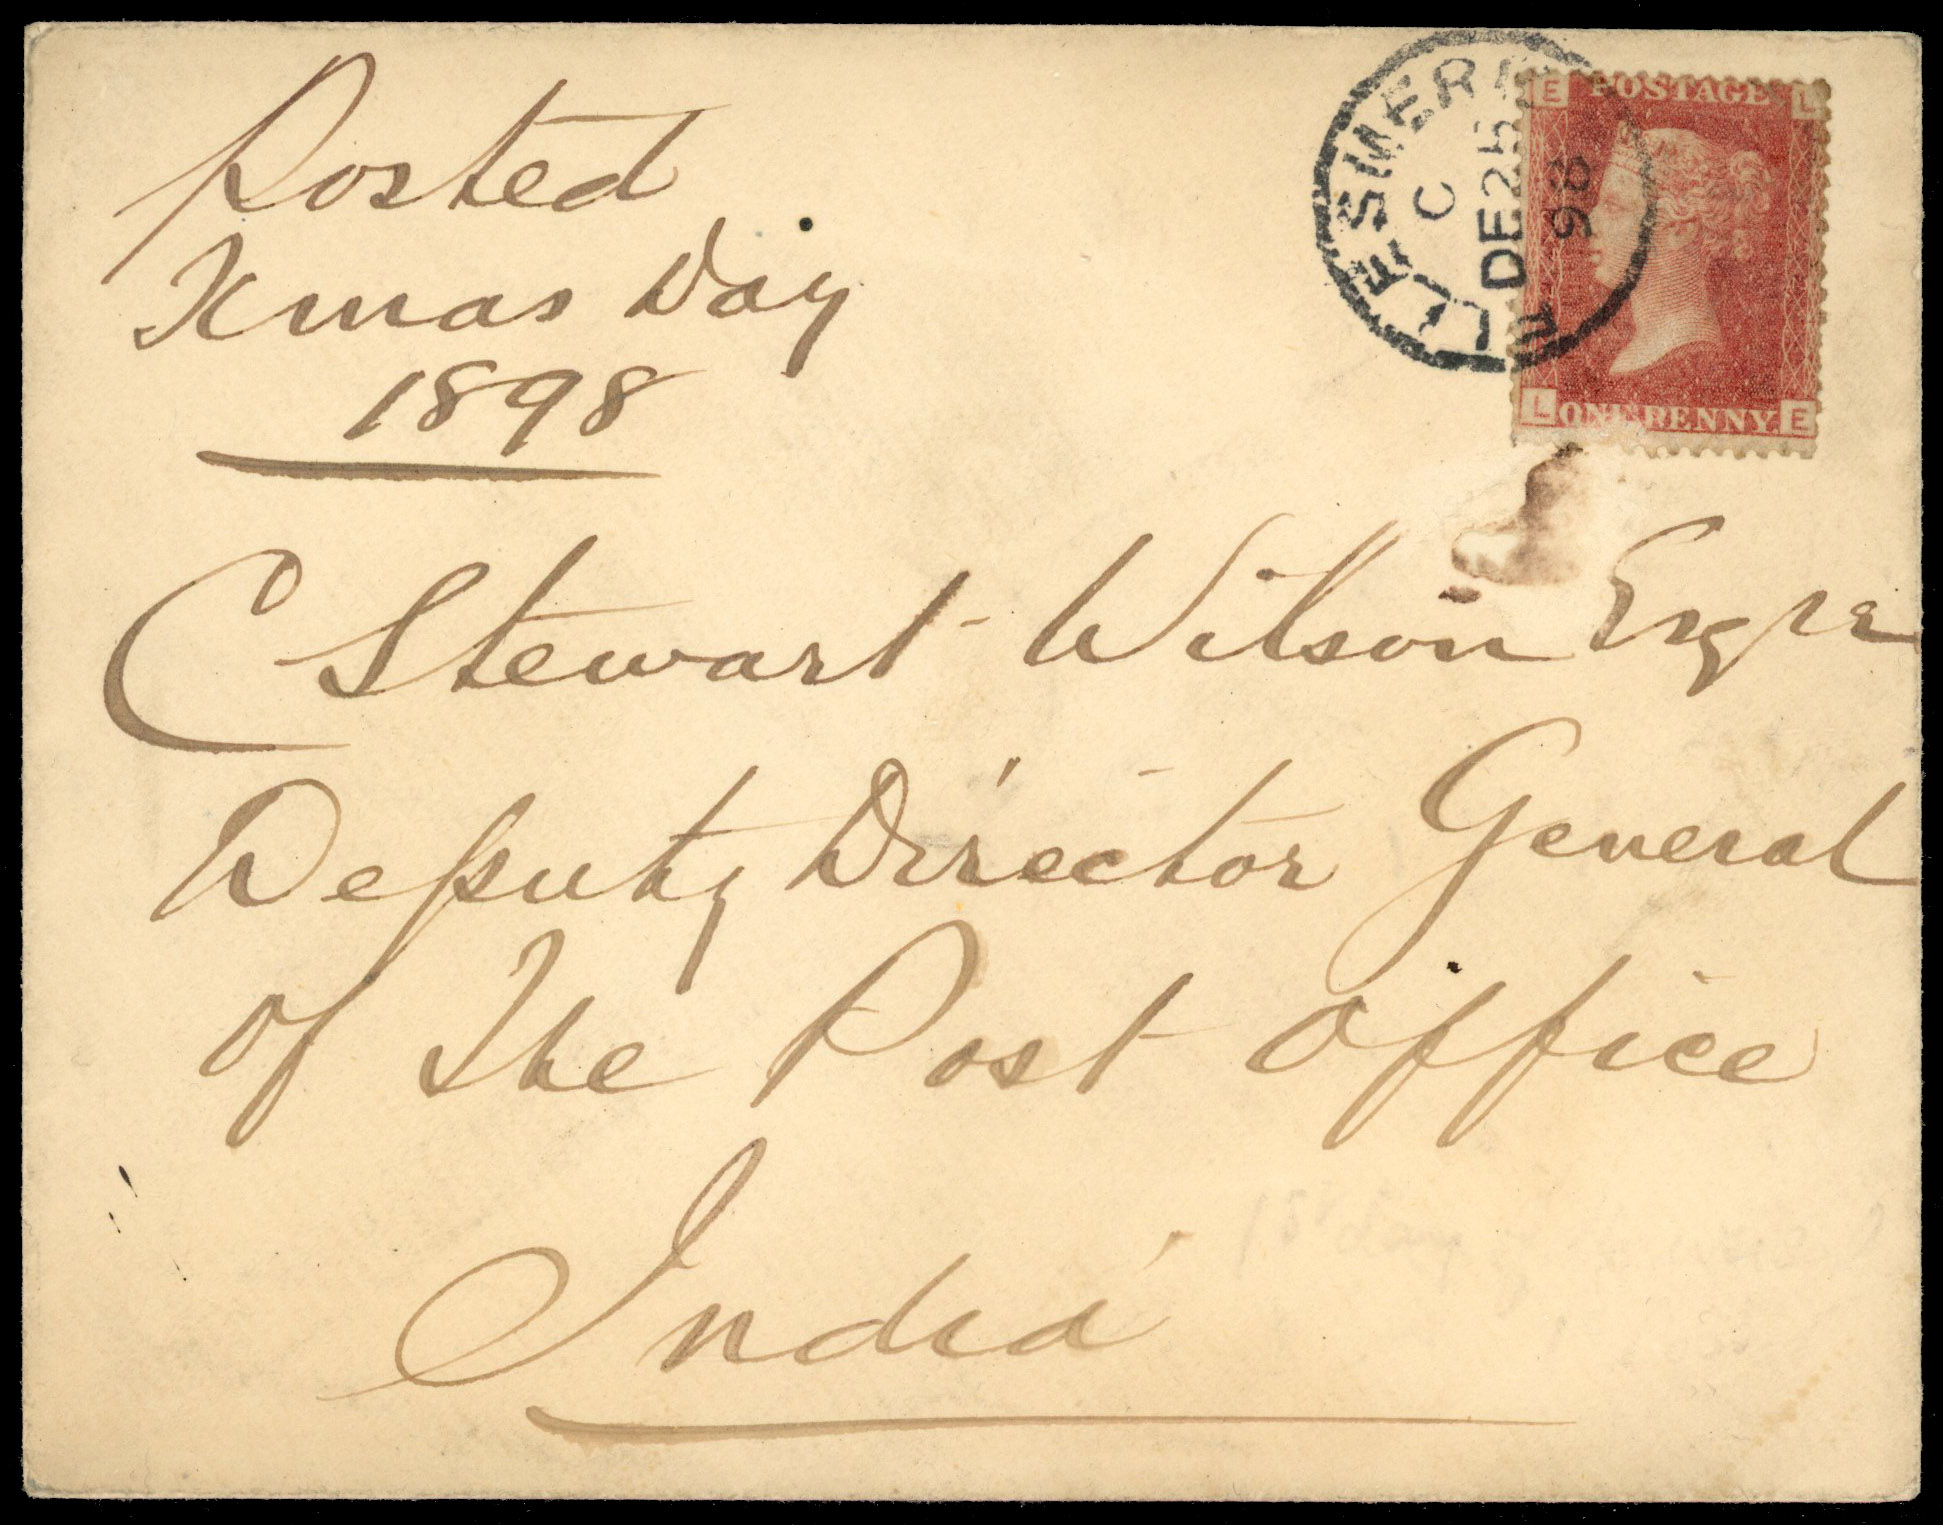 Posted
Xmas Day
1898
ELLESMERE
C
DE 25
98
E POSTAGE L
L ONE PENNY E
C Stewart-Wilson Esqre
Deputy Director General
of The Post Office
India
1st day